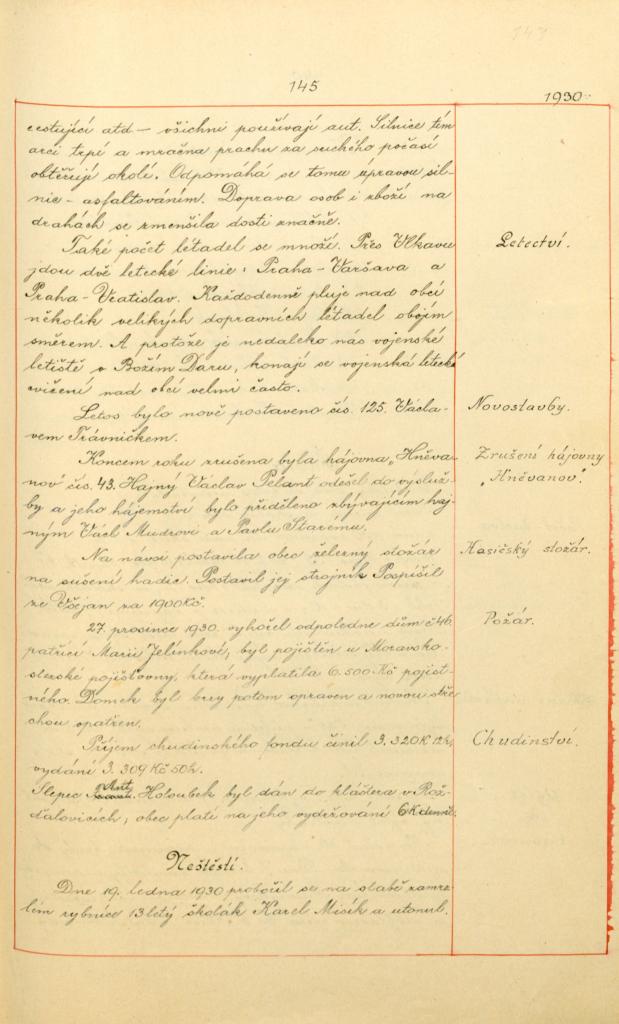 143
145
1930
cestující atd - všichni používají aut. Silnice tím
arci trpí a mračna prachu za suchého počasí
obtěžují okolí. Odpomáhá se tomu úpravou sil-
nic - asfaltováním. Doprava osob i zboží na
drahách se zmenšila dosti značně.
Také počet létadel se množí. Přes Vlkavu
Letectví.
jdou dvě letecké linie: Praha-Varšava a
Praha-Vratislav. Každodenně pluje nad obcí
několik velikých dopravních létadel obojím
směrem. A protože je nedaleko nás vojenské
letiště v Božím Daru, konají se vojenská letecká
cvičení nad obcí velmi často.
Letos bylo nově postaveno čís. 125. Václa-
Novostavby.
vem Trávníčkem.
Koncem roku zrušena byla hájovna „Hněva-
Zrušení hájovny
nov" čís. 43. Hajný Václav Pelant odešel do výsluž-
„Hněvanov".
by a jeho hájemství bylo přiděleno zbývajícím haj-
ným Václ. Mudrovi a Pavlu Starému.
Na návsi postavila obec železný stožár
Hasičský stožár.
na sušení hadic. Postavil jej strojník Pospíšil
ze Všejan za 1900Kč.
27. prosince 1930. vyhořel odpoledne dům č 46.
Požár.
patřící Marii Jelínkové, byl pojištěn u Moravsko-
slezské pojišťovny, která vyplatila 6.500 Kč pojist-
ného. Domek byl brzy potom opraven a novou stře-
chou opatřen.
Příjem chudinského fondu činil 3.320K 12h,
Chudinství.
vydání 3.309 Kč 50h.
Slepec Holoubek byl dán do kláštera v Rož-
ďalovicích, obec platí na jeho vydržování 6K denně.
Neštěstí.
Dne 19. ledna 1930 probořil se na slabě zamrz-
lém rybníce 13letý školák Karel Misík a utonul.